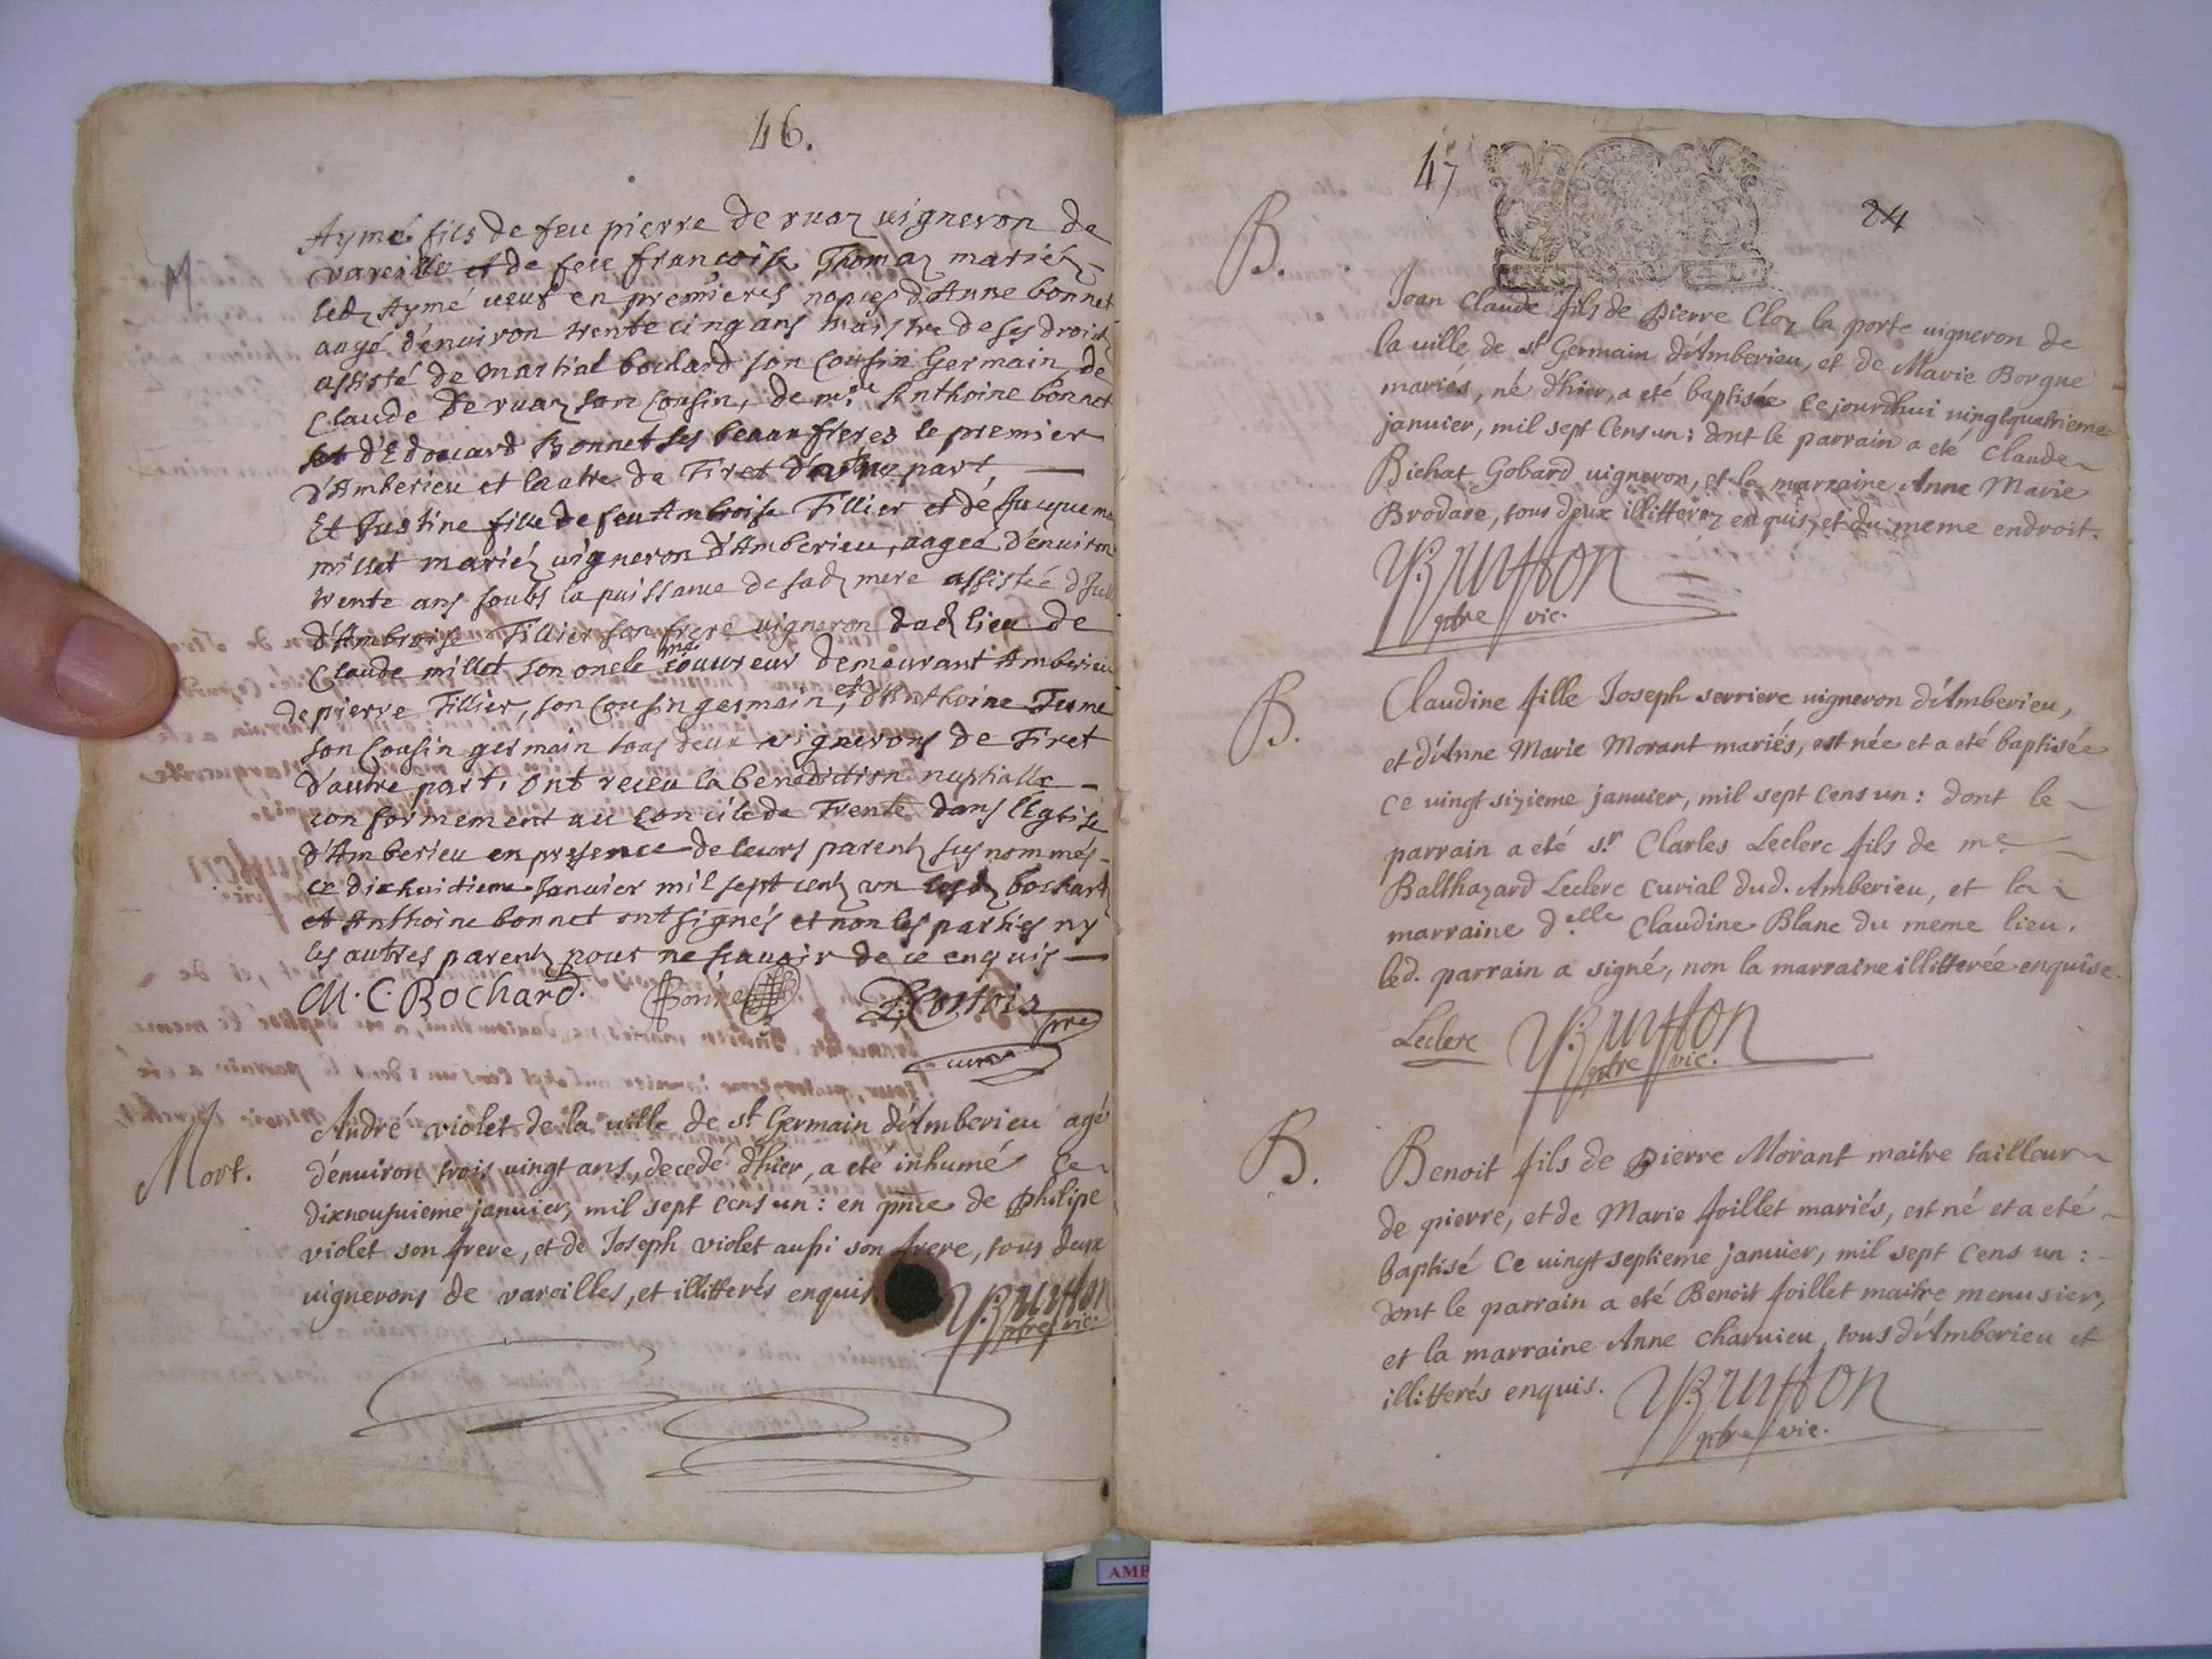 46.
M
Aymé fils de feu pierre de ruaz uigneron de
vareille et de feue francoise Thomaz mariéz
ledz Aymé ueuf en premieres nopces d'Anne bonnet
aagé d'enuiron trente cinq ans maistre de ses droits
assisté de martial bochard son Cousin Germain, de
Claude de ruaz son Cousin, de me Anthoine bonnet
et d'Edouard Bonnet ses beaux freres le premier
d'Amberieu et lautre de Tiret d'une part,
Et Justine fille de feu Ambroise Tillier et de Jacquema
millet mariéz uigneron d'Amberieu, aagée d'enuiron
trente ans soubs la puissance de sadz mere assistée
d'Ambroise Tillier son frere uigneron dudz lieu de
Claude millet son oncle me couureur demeurant Amberieu
de pierre Tillier, son Cousin germain, et d'Anthoine Jume
son Cousin germain tous deux uignerons de Tiret
d'autre part, ont receu la benediction nuptialle
conformement au Concile de Trente dans l'Eglise
d'Amberieu en presence de leurs parentz susnommés
ce dixhuictieme Januier mil sept centz un lesdz bochard
et Anthoine bonnet ont signés et non les parties ny
les autres parentz pour ne scauoir de ce enquis
M. C. Bochard. Bonnet
pre
curé
Mort.
André violet de la uille de st Germain d'Amberieu agé
d'enuiron trois uingt ans, decedé d'hier, a eté inhumé ce
dixneufuieme januier, mil sept cens un : en pnce de philipe
violet son frere, et de Joseph violet aussi son frere, tous deux
uignerons de vareilles, et illitterés enquis.
Brutton
ptre vic.
47
24
B.
Jean Claude fils de pierre Cloz la porte uigneron de
la uille de st Germain d'Amberieu, et de Marie Borgne
mariés, né d'hier, a eté baptisée ce jourdhui uingtquatrieme
januier, mil sept Cens un : dont le parrain a eté Claude
Bichat Gobard uigneron, et la marraine Anne Marie
Brodare, tous deux illitterez enquis, et du meme endroit.
Brutton
ptre vic.
B.
Claudine fille Joseph serriere uigneron d'Amberieu,
et d'Anne Marie Morant mariés, est née et a eté baptisée
ce uingt sizieme januier, mil sept Cens un : dont le
parrain a eté sr Clarles Leclerc fils de me
Balthazard Leclerc curial dud. Amberieu, et la
marraine d.elle Claudine Blanc du meme lieu,
led. parrain a signé, non la marraine illitterée enquise.
Leclerc Brutton
ptre vic.
B.
Benoit fils de pierre Morant maitre tailleur
de pierre, et de Marie foillet mariés, est né et a eté
baptisé ce uingt septieme januier, mil sept Cens un :
dont le parrain a eté Benoit foillet maitre menusier,
et la marraine Anne charuieu, tous d'Amberieu et
illitterés enquis. Brutton
ptre vic.
AMB